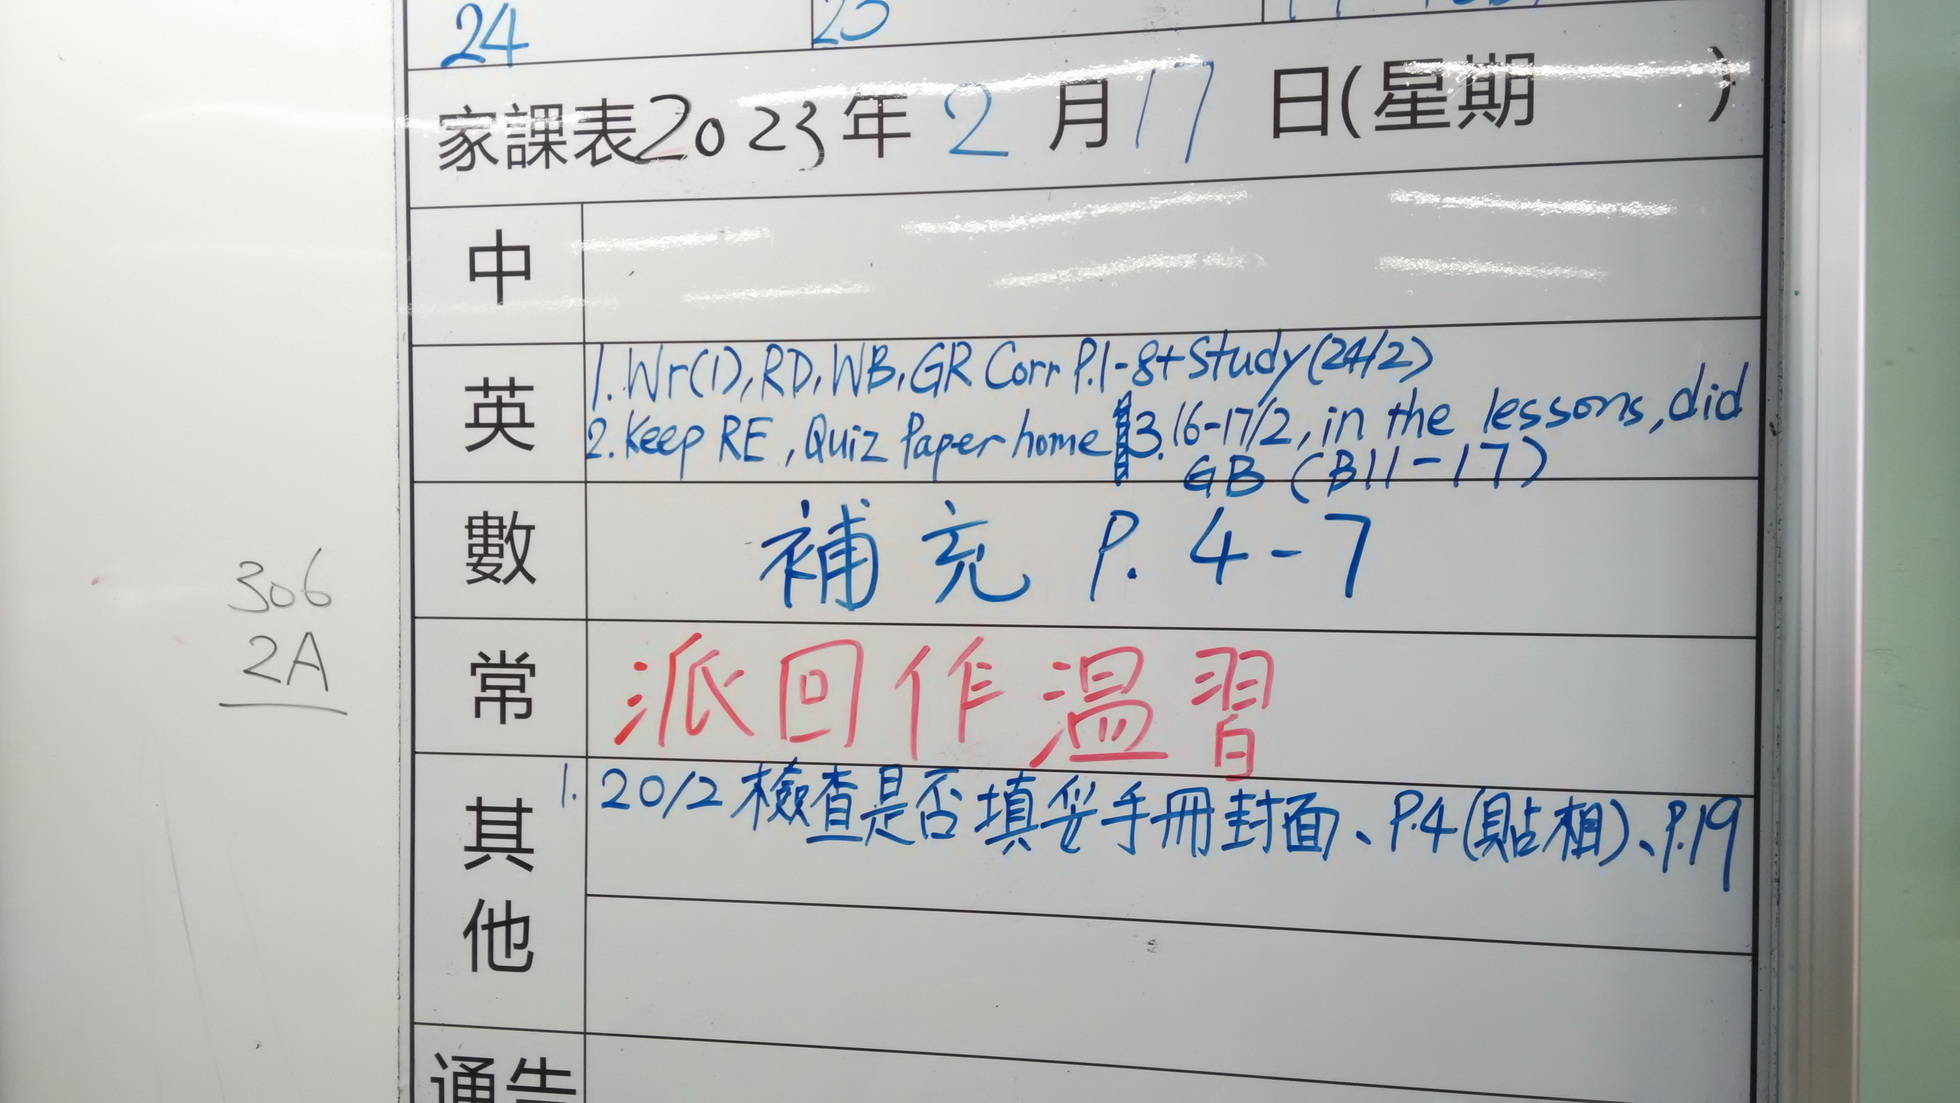 24
23
家課表2023年2月17日(星期 )
中
英
1. Wr(1), RD, WB, GR Corr P.1-8+Study(24/2)
2. Keep RE, Quiz Paper home 3. 16-17/2, in the lessons, did
GB (B11-17)
數
補充 P. 4-7
常
派回作温習
其他
1. 20/2 檢查是否填妥手冊封面、P.4(貼相)、P.19
通告
306
2A